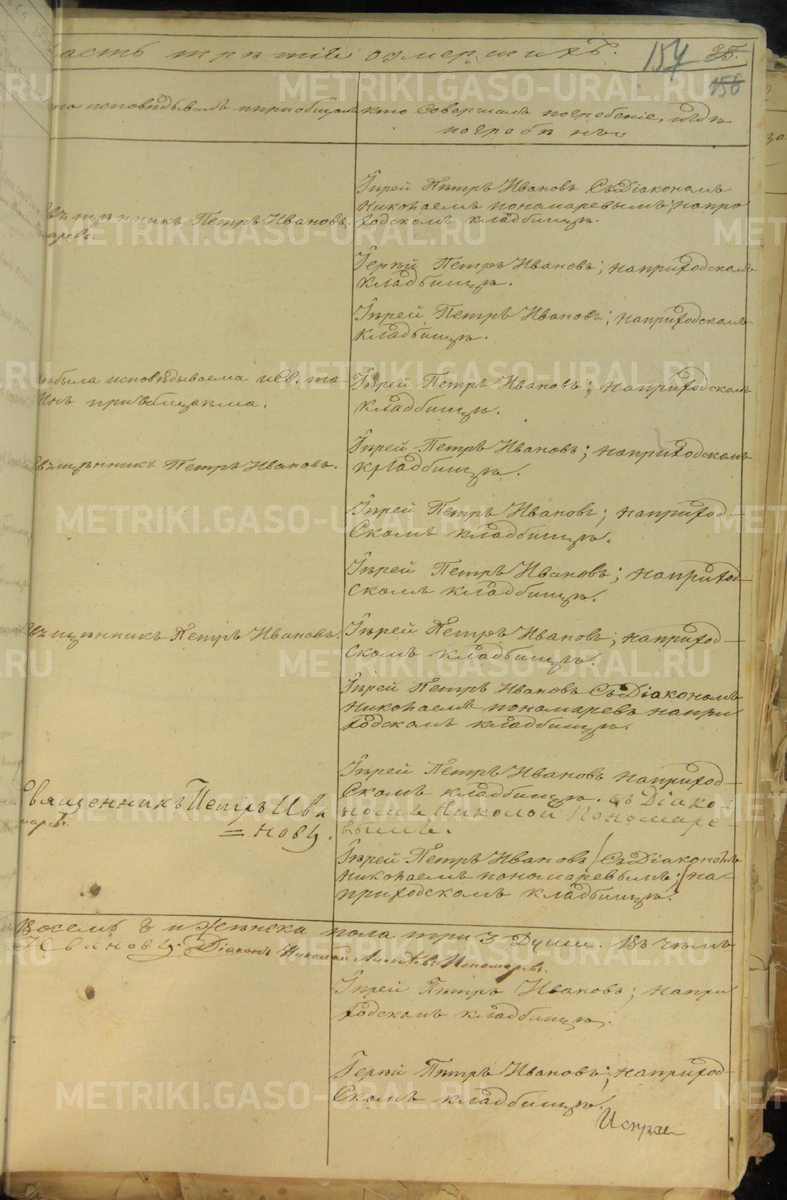 асть третiя о умершихъ.
157 35.
156
то исповѣдывалъ и прiобщалъ
кто совершалъ погребенiе, и гдѣ
погребены
Iерей Петръ Ивановъ Съ Дiакономъ
Николаемъ пономаревымъ; на при
ходскомъ кладбищѣ.
Петръ Ивановъ.
Iерей Петръ Ивановъ; на приходскомъ
кладбищѣ.
Iерей Петръ Ивановъ; на приходскомъ
кладбищѣ.
была исповѣдываема и св. та-
инъ прiобщаема.
Iерей Петръ Ивановъ; на приходскомъ
кладбищѣ.
Петръ Ивановъ.
Iерей Петръ Ивановъ; на приходскомъ
кладбищѣ.
Iерей Петръ Ивановъ; на приход-
Скомъ кладбищѣ.
Iерей Петръ Ивановъ; на приход-
скомъ кладбищѣ.
Петръ Ивановъ.
Iерей Петръ Ивановъ; на приход-
скомъ кладбищѣ.
Iерей Петръ Ивановъ Съ Дiакономъ
Николаемъ пономаревъ на при
ходскомъ кладбищѣ.
Священникъ Петръ Ива
=новъ.
Iерей Петръ Ивановъ на приход-
Скомъ кладбищѣ. съ Дiако
номъ Николай Пономаре
вымъ.
Iерей Петръ Ивановъ (Съ Дiакономъ
Николаемъ пономаревымъ;) на-
приходскомъ кладбищѣ.
восемь 8 и женска пола три 3 Души. Въ чемъ
Ивановъ. Дiаконъ Николай Пономаревъ.
Iерей Петръ Ивановъ; на при
ходскомъ кладбищѣ.
Iерей Петръ Ивановъ; на приход-
Скомъ кладбищѣ.
METRIKI.GASO-URAL.RU